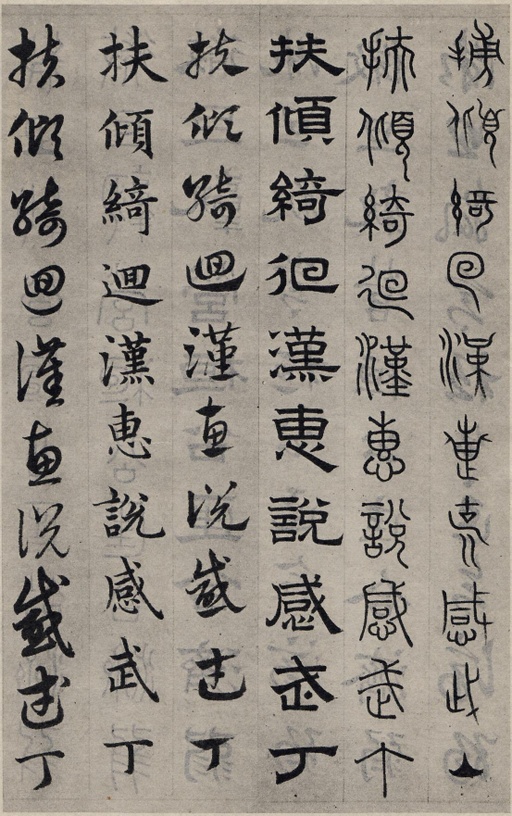 扶傾綺回漢惠說感武丁
扶傾綺迴漢惠說感武丁
扶傾綺迴漢惠說感武丁
扶傾綺迴漢惠說感武丁
扶傾綺迴漢惠說感武丁
扶傾綺迴漢惠說感武丁